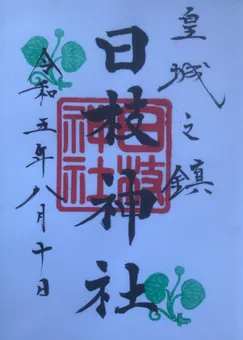 皇城之鎮
日枝神社
令和五年八月十日
日枝
神社